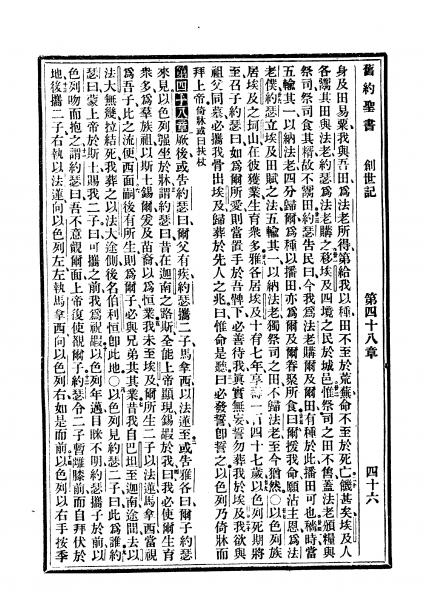 舊約聖書 創世記 第四十八章 四十六
身及田易粟我與吾田爲法老所得第給我以種田不至於荒蕪命不至於死亡餓甚矣埃及人
各鬻其田與法老約瑟爲法老購之移埃及四境之民於城邑惟祭司之田不售蓋法老頒糧與
祭司祭司食其糈故不鬻田約瑟告民曰今我爲法老購爾及爾田有種於此播田可也穡時當
五輸其一以納法老四分歸爾爲種以播田亦爲爾及爾眷聚所食曰爾援我命願沾主恩爲法
老僕約瑟立埃及田賦之法五輸其一以納法老獨祭司之田不歸法老至今猶然○以色列族
居埃及之坷山在彼獲業生育衆多雅各居埃及十有七年享壽一百四十七歲以色列死期將
至召子約瑟曰如爲爾所愛則當置手於吾髀下必善待我眞實無妄誓勿葬我於埃及我欲與
祖父同墓必攜我骨出埃及歸葬於先人之兆曰惟命是聽曰必發誓卽誓之以色列乃倚牀而
拜上帝倚牀或曰扶杖
第四十八章厥後或告約瑟曰爾父有疾約瑟攜二子馬拿西以法蓮至或告雅各曰爾子約瑟
來見以色列强坐於牀謂約瑟曰昔在迦南之路斯全能上帝顯現錫嘏於我曰我必使爾生育
衆多爲羣族祖以斯土錫爾爰及苗裔以爲恒業我未至埃及爾所生二子以法蓮馬拿西當視
爲吾子此之流便西面嗣後有所生則爲爾子必與兄弟共其業昔我自巴旦至迦南途間去以
法大無幾拉結死我葬之以法大途側後名伯利恒卽此地○以色列見約瑟二子曰此爲誰約
瑟曰蒙上帝於斯土賜我二子曰可攜之前我爲祝嘏以色列年邁目眯不明約瑟攜子於前以
色列吻而抱之謂約瑟曰吾不意觀爾面上帝復使覩爾子約瑟令二子暫離膝前而自拜伏於
地後攜二子右執以法蓮向以色列左左執馬拿西向以色列右如是而前以色列以右手按季